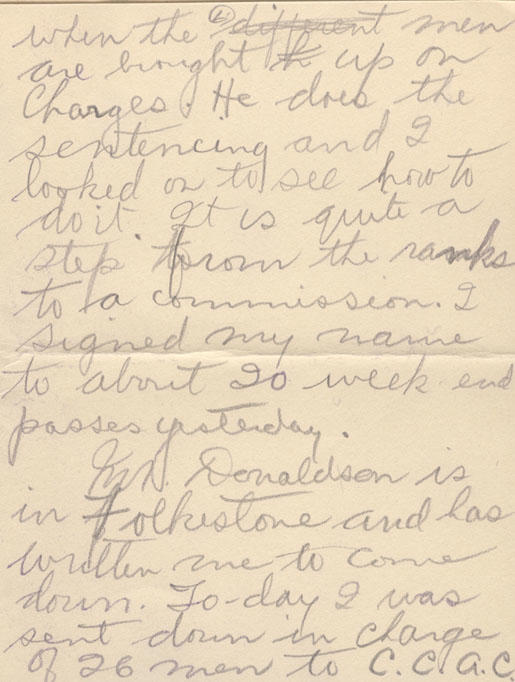 when the different men
are brought up on
Charges. He does the
sentencing and I
looked on to see how to
do it. It is quite a
step from the ranks
to a commission. I
signed my name
to about 20 week end
passes yesterday.
Mr. Donaldson is
in Folkestone and has
written me to come
down. To-day I was
sent down in charge
of 26 men to C.C.A.C.